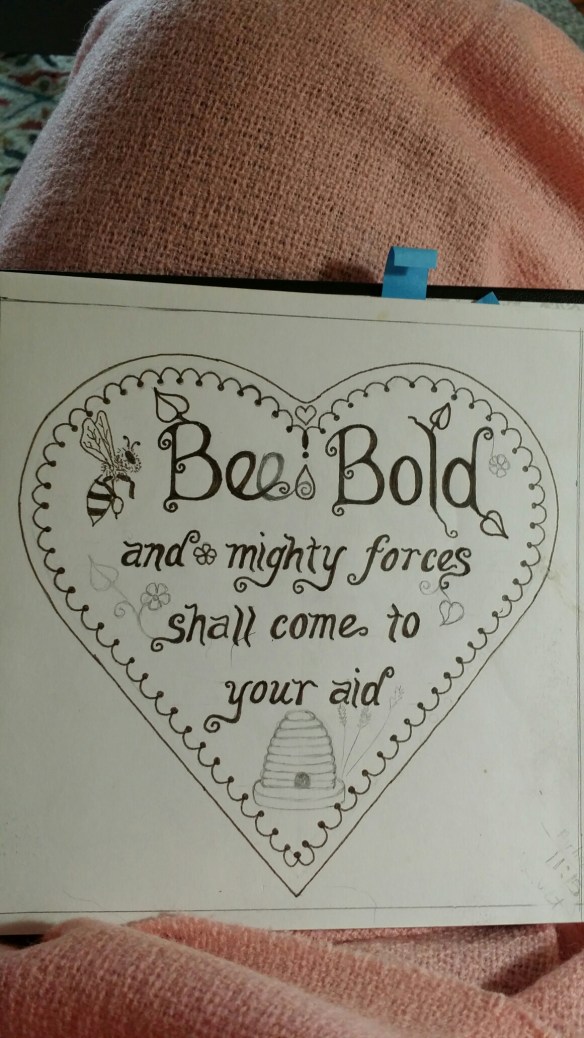 Bee Bold
and mighty forces
shall come to
your aid